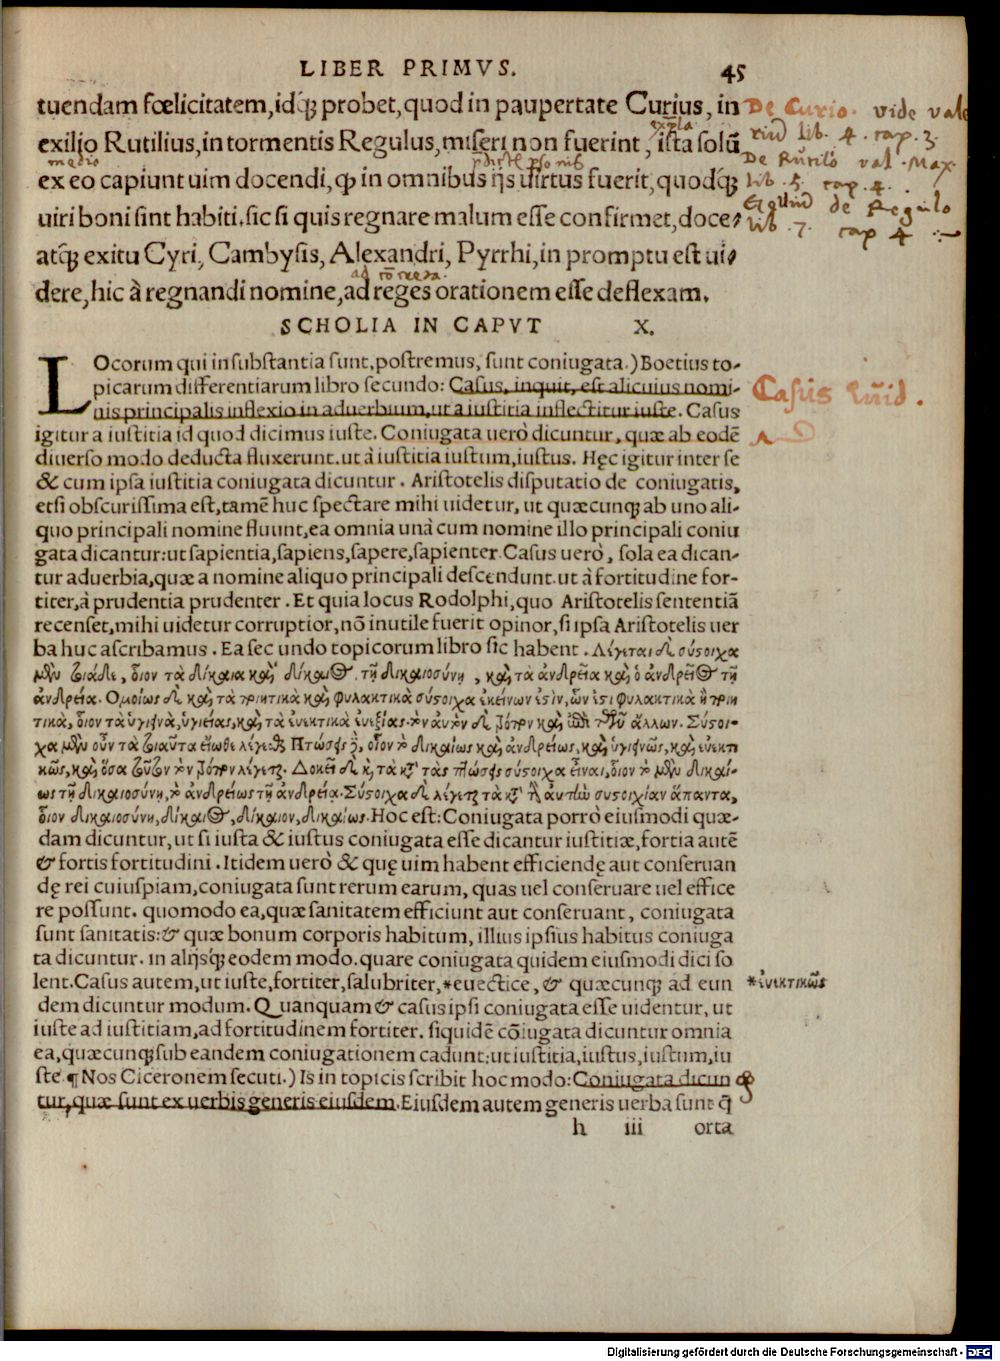 LIBER PRIMVS. 45
tuendam fœlicitatem, idq́; probet, quod in paupertate Curius, in
exilio Rutilius, in tormentis Regulus, miseri non fuerint, ista solũ
ex eo capiunt uim docendi, ꝙ in omnibus ijs uirtus fuerit, quodq́;
uiri boni sint habiti. sic si quis regnare malum esse confirmet, doce-
atq́; exitu Cyri, Cambysis, Alexandri, Pyrrhi, in promptu est ui-
dere, hic à regnandi nomine, ad reges orationem esse deflexam.
De Curio. vide vale
lib. 4. cap. 3.
De Rutilo val. Max.
lib. 5. cap. 4.
de Regulo
lib. 7. cap 4
SCHOLIA IN CAPVT X.
LOcorum qui in substantia sunt, postremus, sunt coniugata.) Boetius to-
picarum differentiarum libro secundo: Casus, inquit, est alicuius nomi-
nis principalis inflexio in aduerbium, ut a iustitia inflectitur iuste. Casus
igitur a iustitia id quod dicimus iuste. Coniugata uerò dicuntur, quæ ab eodẽ
diuerso modo deducta fluxerunt. ut à iustitia iustum, iustus. Hęc igitur inter se
& cum ipsa iustitia coniugata dicuntur. Aristotelis disputatio de coniugatis,
etsi obscurissima est, tamẽ huc spectare mihi uidetur, ut quæcunq; ab uno ali-
quo principali nomine fluunt, ea omnia unà cum nomine illo principali coniu
gata dicantur: ut sapientia, sapiens, sapere, sapienter. Casus uerò, sola ea dican-
tur aduerbia, quæ a nomine aliquo principali descendunt. ut à fortitudine for-
titer, à prudentia prudenter. Et quia locus Rodolphi, quo Aristotelis sententiã
recenset, mihi uidetur corruptior, nõ inutile fuerit opinor, si ipsa Aristotelis uer
ba huc ascribamus. Ea secundo topicorum libro sic habent. Λέγεται δὲ σύστοιχα
μὲν τοιάδε, οἷον τὰ δίκαια καὶ ὁ δίκαιος τῇ δικαιοσύνῃ, καὶ τὰ ἀνδρεῖα καὶ ὁ ἀνδρεῖος τῇ
ἀνδρείᾳ. Ομοίως δὲ καὶ τὰ ποιητικὰ καὶ φυλακτικὰ σύστοιχα ἐκείνων ἐστὶν, ὧν ἐστὶ φυλακτικὰ ἢ ποιη
τικὰ, οἷον τὰ ὑγιεινὰ, ὑγιείας, καὶ τὰ εὐεκτικὰ εὐεξίας. τὸν αὐτὸν δὲ τρόπον καὶ ἐπὶ τῶν ἄλλων. Σύστοι-
χα μὲν οὖν τὰ τοιαῦτα εἴωθε λέγεσθαι. Πτώσεις δὲ, οἷον τὸ δικαίως καὶ ἀνδρείως, καὶ ὑγιεινῶς, καὶ εὐεκτι
κῶς, καὶ ὅσα τοῦτον τὸν τρόπον λέγεται. Δοκεῖ δὲ καὶ τὰ κατὰ τὰς πτώσεις σύστοιχα εἶναι, οἷον τὸ μὲν δικαί-
ως τῇ δικαιοσύνῃ, τὸ ἀνδρείως τῇ ἀνδρείᾳ. Σύστοιχα δὲ λέγεται τὰ κατὰ τὴν αὐτὴν συστοιχίαν ἅπαντα,
οἷον δικαιοσύνη, δίκαιος, δίκαιον, δικαίως. Hoc est: Coniugata porrò eiusmodi quæ-
dam dicuntur, ut si iusta & iustus coniugata esse dicantur iustitiæ, fortia autẽ
& fortis fortitudini. Itidem uerò & quę uim habent efficiendę aut conseruan
dę rei cuiuspiam, coniugata sunt rerum earum, quas uel conseruare uel effice
re possunt. quomodo ea, quæ sanitatem efficiunt aut conseruant, coniugata
sunt sanitatis: & quæ bonum corporis habitum, illius ipsius habitus coniuga
ta dicuntur. in alijsq́; eodem modo. quare coniugata quidem eiusmodi dici so
lent. Casus autem, ut iuste, fortiter, salubriter, *euectice, & quæcunq; ad eun
dem dicuntur modum. Quanquam & casus ipsi coniugata esse uidentur, ut
iuste ad iustitiam, ad fortitudinem fortiter. siquidẽ cõiugata dicuntur omnia
ea, quæcunq; sub eandem coniugationem cadunt: ut iustitia, iustus, iustum, iu
ste. ¶ Nos Ciceronem secuti.) Is in topicis scribit hoc modo: Coniugata dicun
tur, quæ sunt ex uerbis generis eiusdem. Eiusdem autem generis uerba sunt q̃
Casus quid.
*εὐεκτικῶς
h iii orta
Digitalisierung gefördert durch die Deutsche Forschungsgemeinschaft - DFG